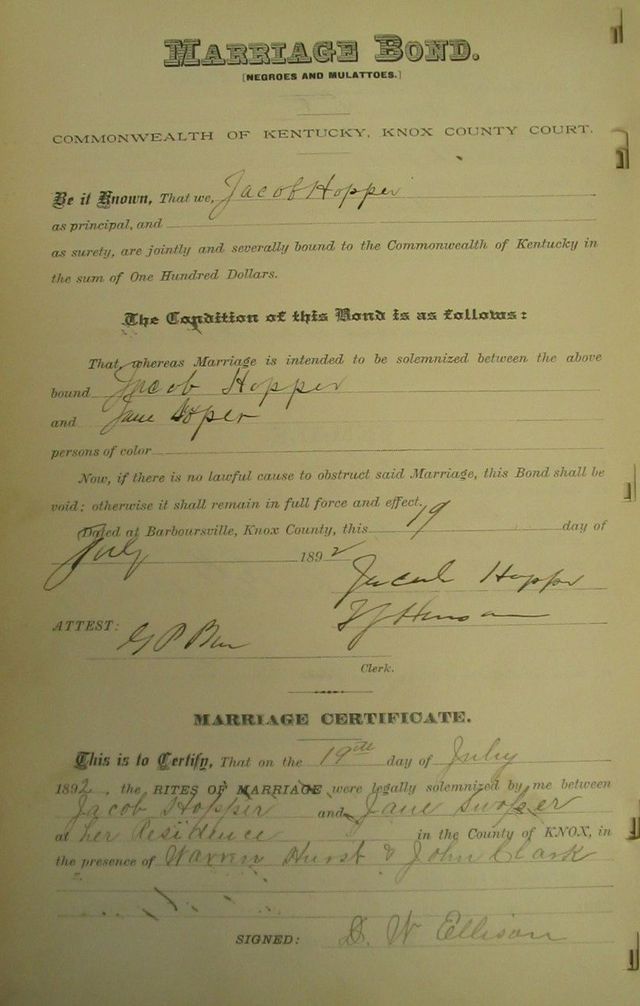 MARRIAGE BOND.
[NEGROES AND MULATTOES.]
COMMONWEALTH OF KENTUCKY, KNOX COUNTY COURT.
Be it Known, That we, Jacob Hopper
as principal, and
as surety, are jointly and severally bound to the Commonwealth of Kentucky in
the sum of One Hundred Dollars.
The Condition of this Bond is as follows:
That whereas Marriage is intended to be solemnized between the above
bound Jacob Hopper
and Jane
persons of color
Now, if there is no lawful cause to obstruct said Marriage, this Bond shall be
void; otherwise it shall remain in full force and effect.
Dated at Barboursville, Knox County, this 19 day of
July 1892
Jacob Hopper
ATTEST:
Clerk.
MARRIAGE CERTIFICATE.
This is to Certify, That on the 19th day of July
1892, the RITES OF MARRIAGE were legally solemnized by me between
Jacob Hopper and Jane Swopper
at her Residence in the County of KNOX, in
the presence of Warren Hurst & John Clark
SIGNED: D. W Ellison